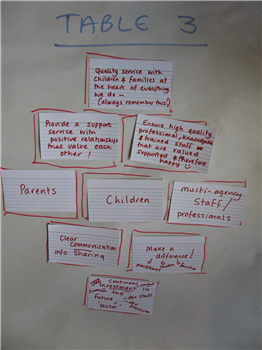 TABLE 3
Quality service with
children & families at
the heart of everything
we do -
(always remember this!)
Provide a support
service with
positive relationships
that value each
other!
Ensure high quality,
professional, knowledgeable
& trained staff
that are valued
supported & therefore
happy
Parents
Children
multi-agency
Staff/
professionals
Clear
Communication
info sharing
Make a
difference!
Continued
investment in
future
staff
sector